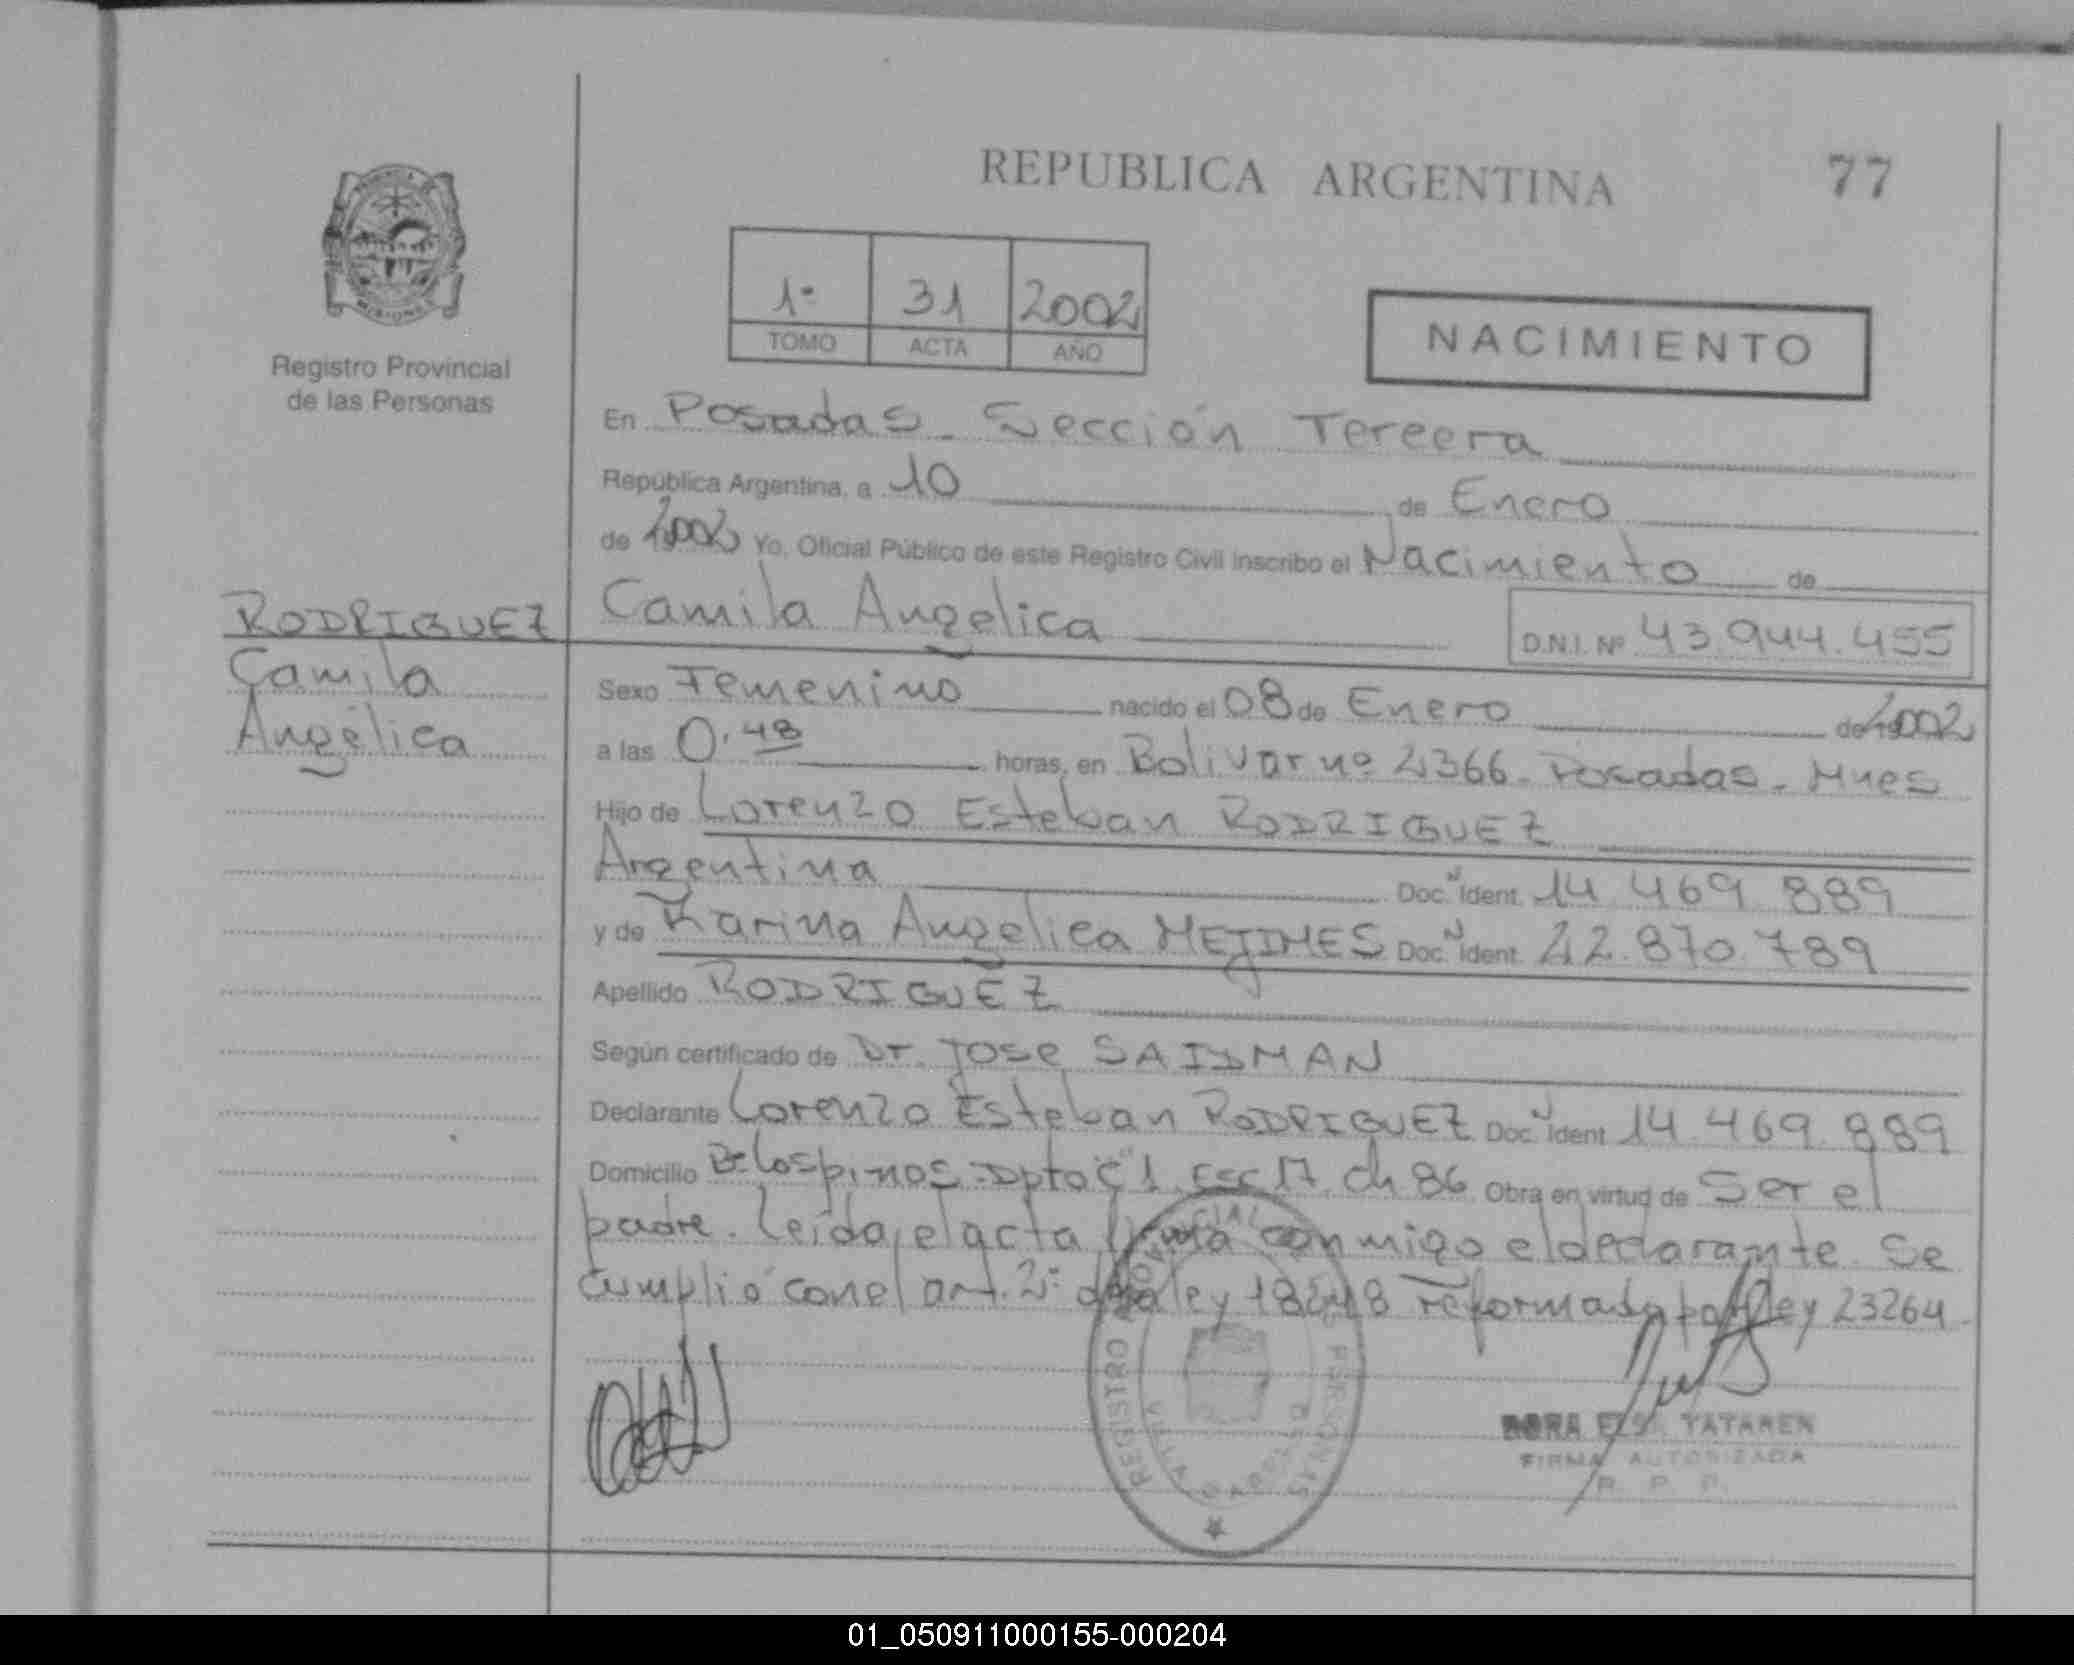 REPUBLICA ARGENTINA
77
1º 31 2002
TOMO ACTA AÑO
NACIMIENTO
Registro Provincial
de las Personas
En Posadas. Sección Tercera
República Argentina, a 10 de Enero
de 2002 Yo, Oficial Público de este Registro Civil inscribo el Nacimiento de
RODRIGUEZ
Camila
Angélica
Camila Angelica D.N.I. Nº 43.944.455
Sexo Femenino nacido el 08 de Enero de 2002
a las 0.48 horas, en Bolivar nº 2366. Posadas. Mnes
Hijo de Lorenzo Esteban RODRIGUEZ
Argentina Doc. Ident. 14.469.889
y de Karina Angelica Doc. Ident. 22.870.789
Apellido RODRIGUEZ
Según certificado de Dr. Jose SAIDMAN
Declarante Lorenzo Esteban RODRIGUEZ Doc. Ident. 14.469.889
Domicilio Dpto 1 17 ch 86 Obra en virtud de Ser el
padre. Leida el acta firma conmigo el declarante. Se
cumplió con el art. 2º de la ley 18248 reformada por ley 23264.
REGISTRO PROVINCIAL PERSONAS
TATAREN
FIRMA AUTORIZADA
R. P. P.
01_050911000155-000204